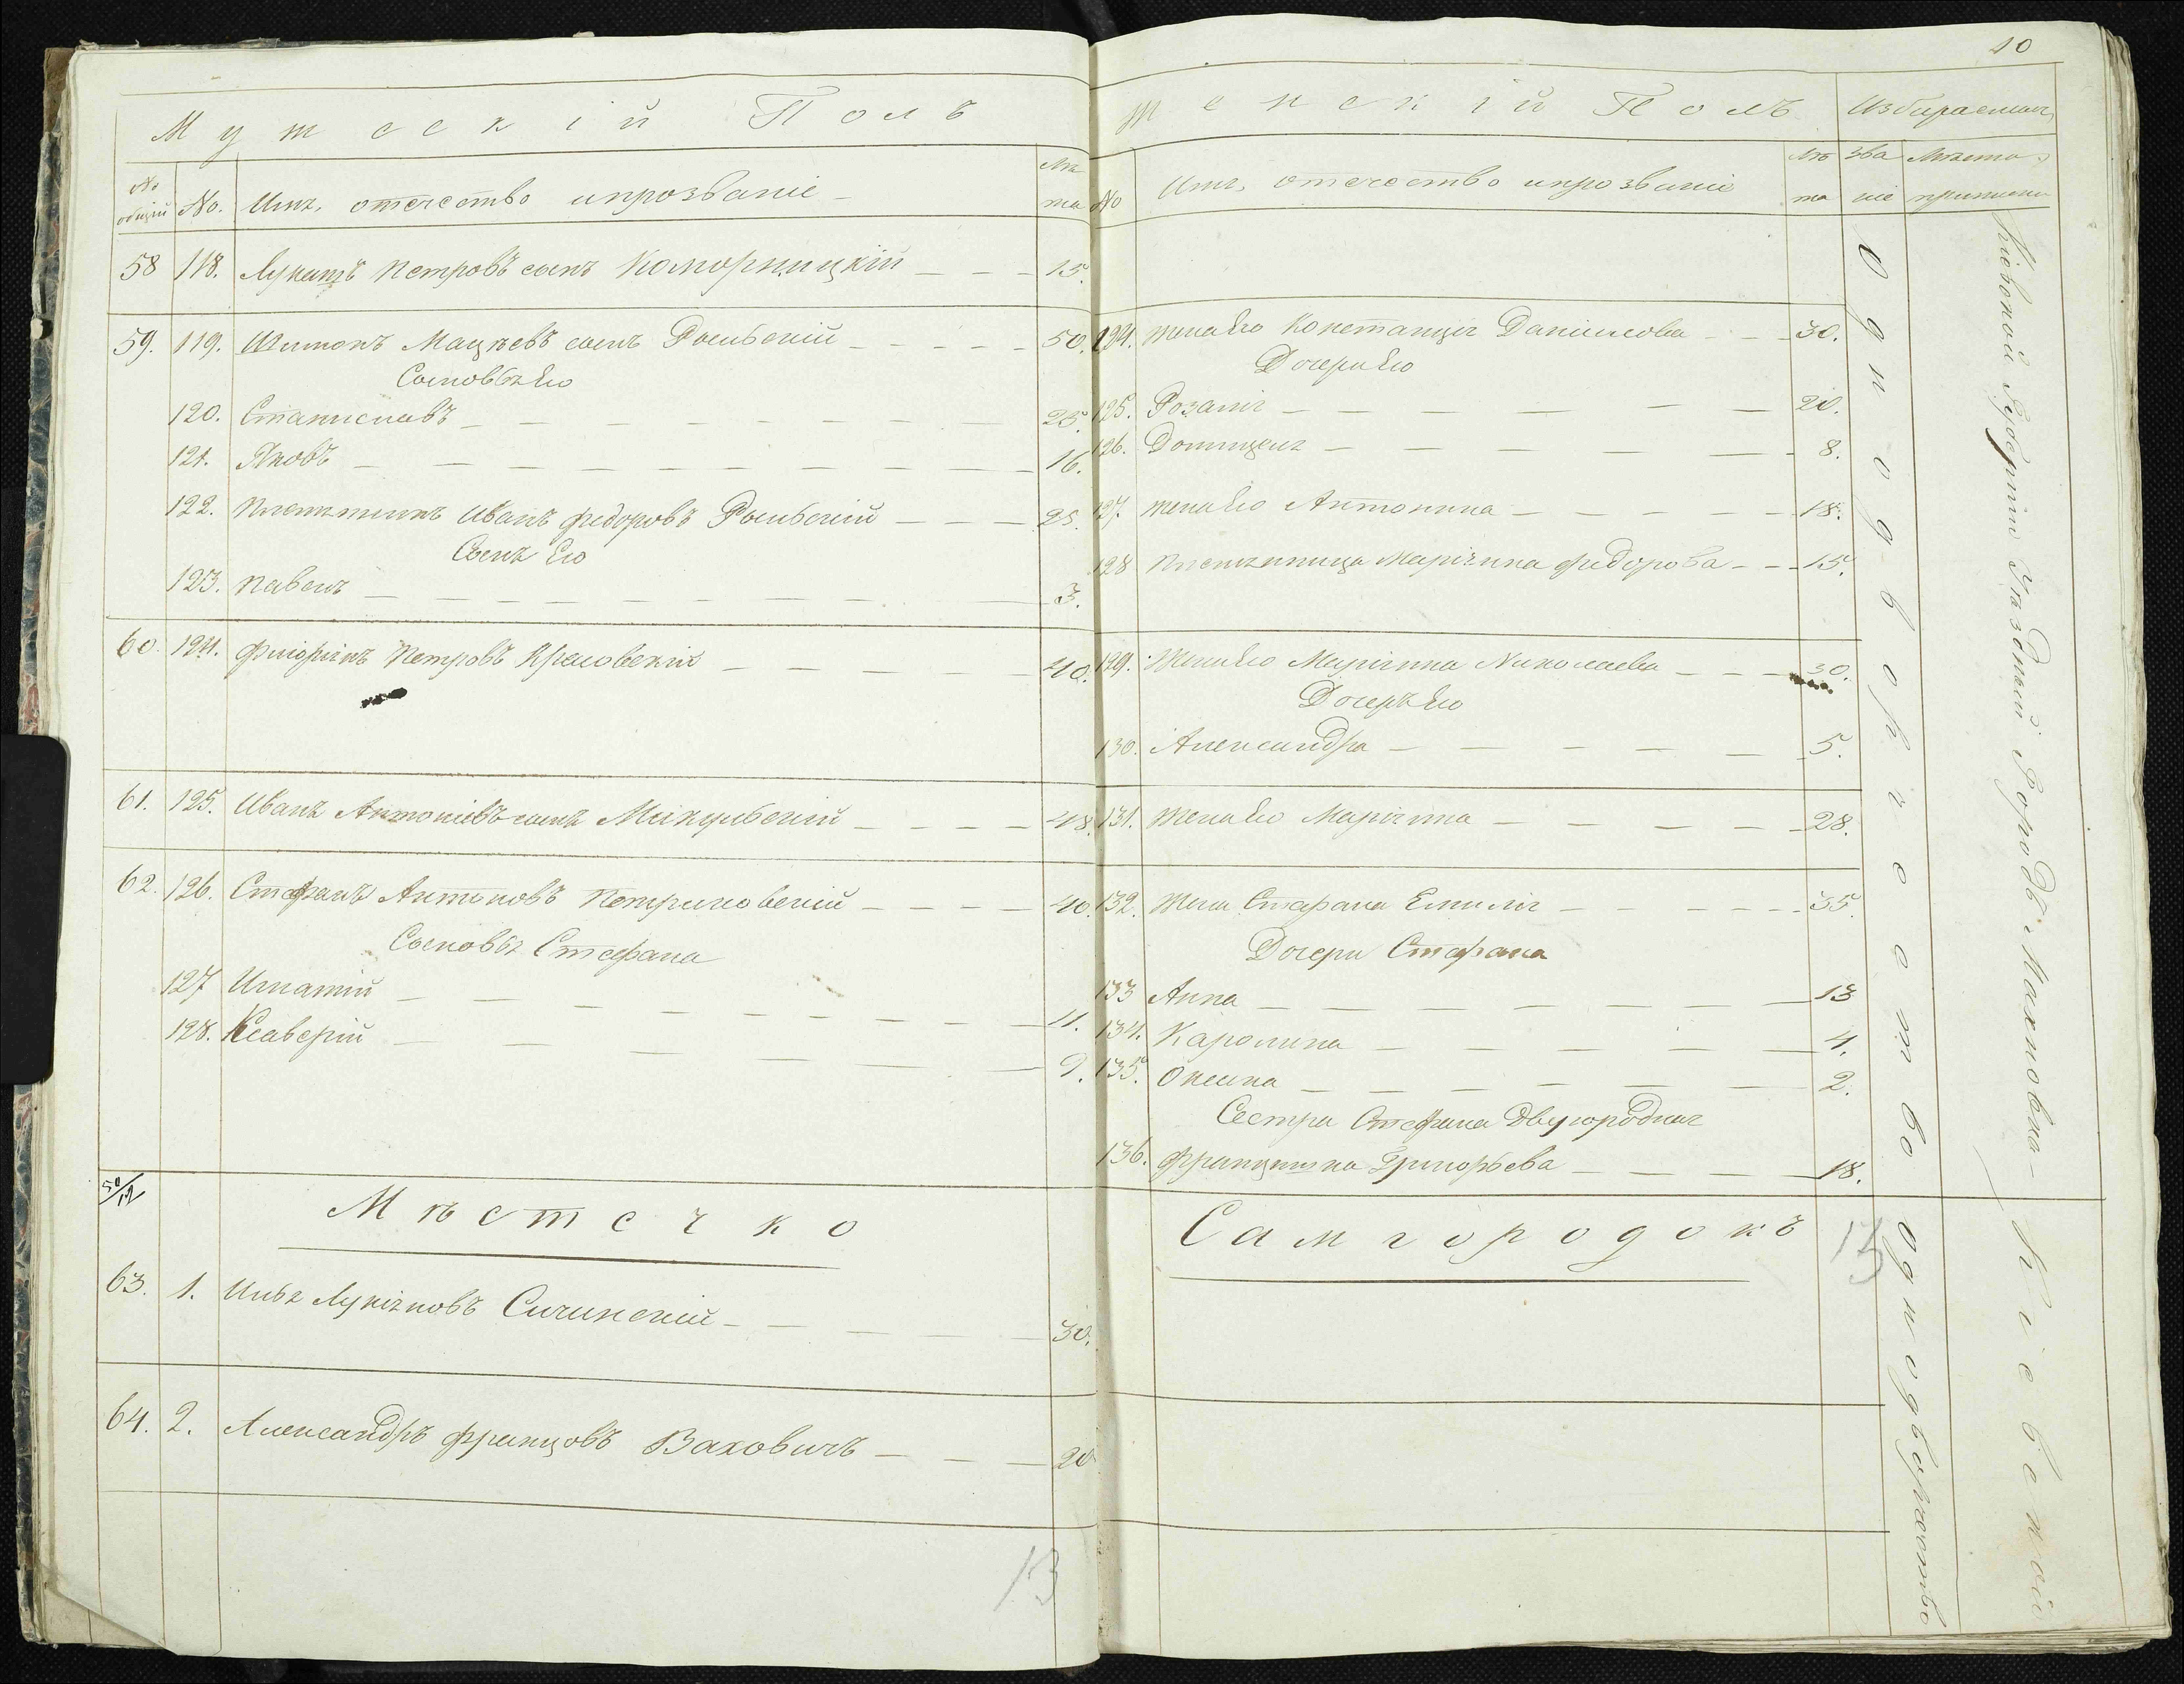 Мужескій Полъ
№ общій
№.
Имя, отчество и прозваніе
Лѣта
58 118. Лукашъ Петровъ сынъ Коморницкій 15.
59. 119. Шимонъ Мацѣевъ сынъ Рыльскій 50.
Сыновья Его
120. Станиславъ 25.
121. Яковъ 16.
122. Племянникъ Иванъ Федоровъ Рыльскій 25.
Сынъ Его
123. Павелъ 3.
60. 124. Флоріянъ Петровъ 40.
61. 125. Иванъ Антоніевъ сынъ Микульскій 48.
62. 126. Стефанъ Антоновъ 40.
Сыновья Стефана
127 Игнатій 11.
128. Ксаверій 9.
50/12
Мѣстечко
63. 1. Илья Лукіяновъ 30.
64. 2. Александръ Францовъ Ваховичъ 20
13
10
Женскій Полъ
Избираемая
№
Имя, отчество и прозваніе
Лѣта
званіе
Мѣсто приписки
124. Жена Его Констанція Даніилова 30.
Дочери Его
125. Розалія 20.
126. Доминцеля 8.
127. Жена Его Антонина 18.
128 Племянница Маріянна Федорова 15.
129. Жена Его Маріянна Николаева 30.
Дочерь Его
130. Александра 5.
131. Жена Его Маріянна 28.
132. Жена Стефана Емилія 35.
Дочери Стефана
133 Анна 13
134. Каролина 4.
135. Оксина 2.
Сестра Стефана Двуюродная
136. Францишка Григорьева 18.
Самгородокъ
15
Однодворчество
Кіевской Губерніи Уѣздный Городъ Махновка
Однодворчество
Кіевской